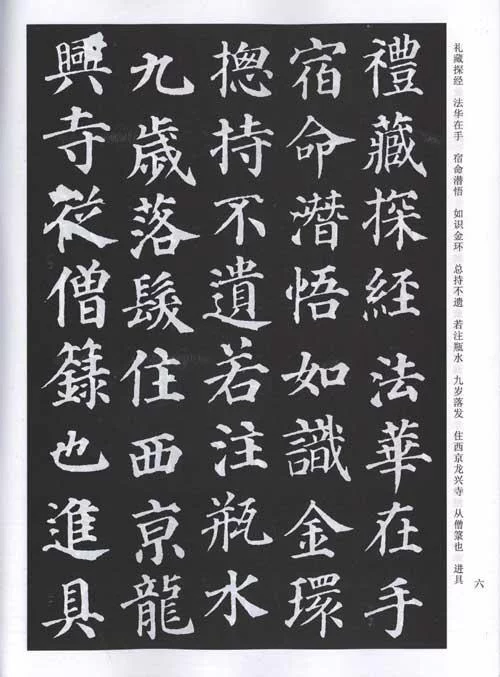 礼藏探经　法华在手　宿命潜悟　如识金环　总持不遗　若注瓶水　九岁落发　住西京龙兴寺　从僧箓也　进具
六
禮藏探經法華在手
宿命潛悟如識金環
揔持不遺若注瓶水
九歲落髮住西京龍
興寺從僧籙也進具